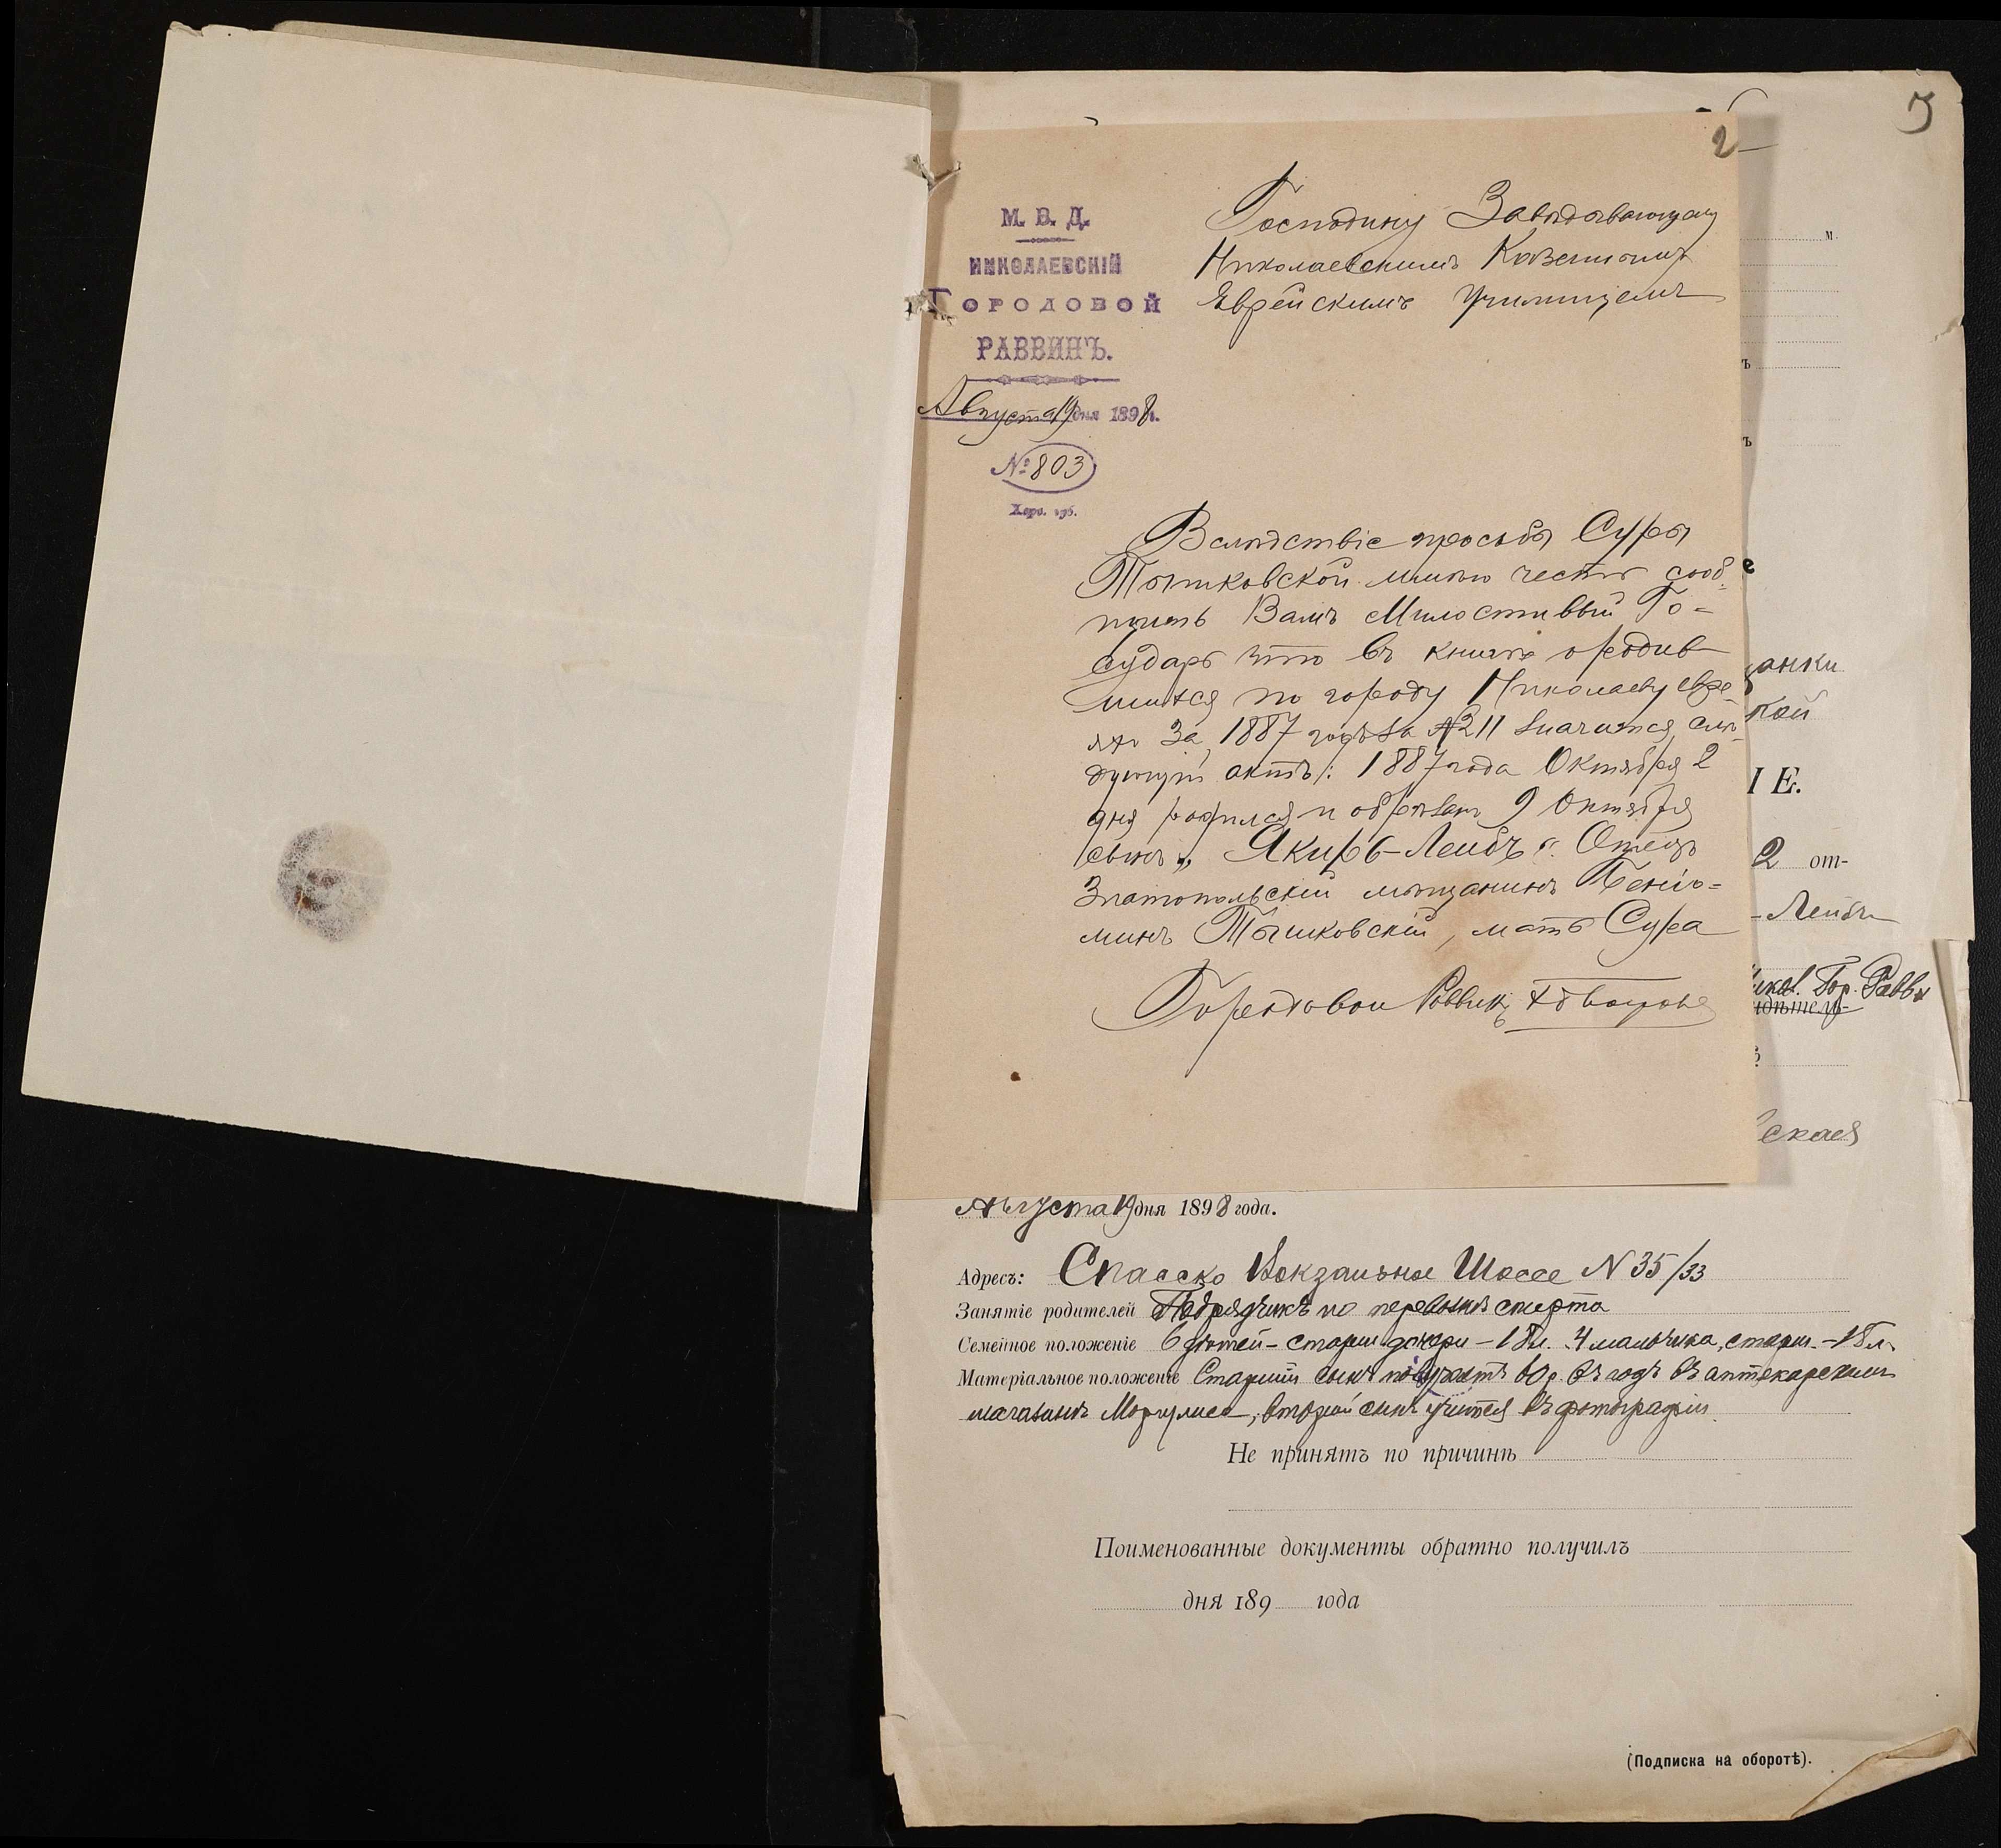 5
2
М. В. Д.
НИКОЛАЕВСКІЙ
ГОРОДОВОЙ
РАВВИНЪ.
Августа 19 дня 1898 г.
№ 803
Херс. губ.
Господину Завѣдывающему
Николаевскимъ Казеннымъ
Еврейскимъ Училищемъ
Вслѣдствіе просьбы Суры
Тышковской имѣю честь сооб-
щить Вамъ Милостивый Го-
сударь что въ книгѣ о родив-
шихся по городу Николаеву евре-
яхъ за 1887 годъ за № 211 значится слѣ-
дующій актъ: 1887 года Октября 2
дня родился и обрѣзанъ 9 Октября
сынъ „Якиръ-Лейбъ". Отецъ
Златопольскій мѣщанинъ Беніо-
минъ Тышковскій, мать Сура
Городовой Раввинъ
м.
ъ
ъ
е
анки
кой
IЕ.
2 от-
-Лейбъ
Гор. Равв
скася
Августа 19 дня 1898 года.
Адресъ: Спасско Вокзальное Шоссе N 35/33
Занятіе родителей Подрядчикъ по перевозкѣ спирта
Семейное положеніе 6 дѣтей - старш. дочери - 18 л. 4 мальчика, старш. - 18 л.
Матеріальное положеніе Старшій сынъ получаетъ 60 р. въ годъ въ аптекарскомъ
магазинѣ Моргулиса, второй сынъ учится въ фотографіи.
Не принятъ по причинѣ
Поименованные документы обратно получилъ
дня 189 года
(Подписка на оборотѣ).